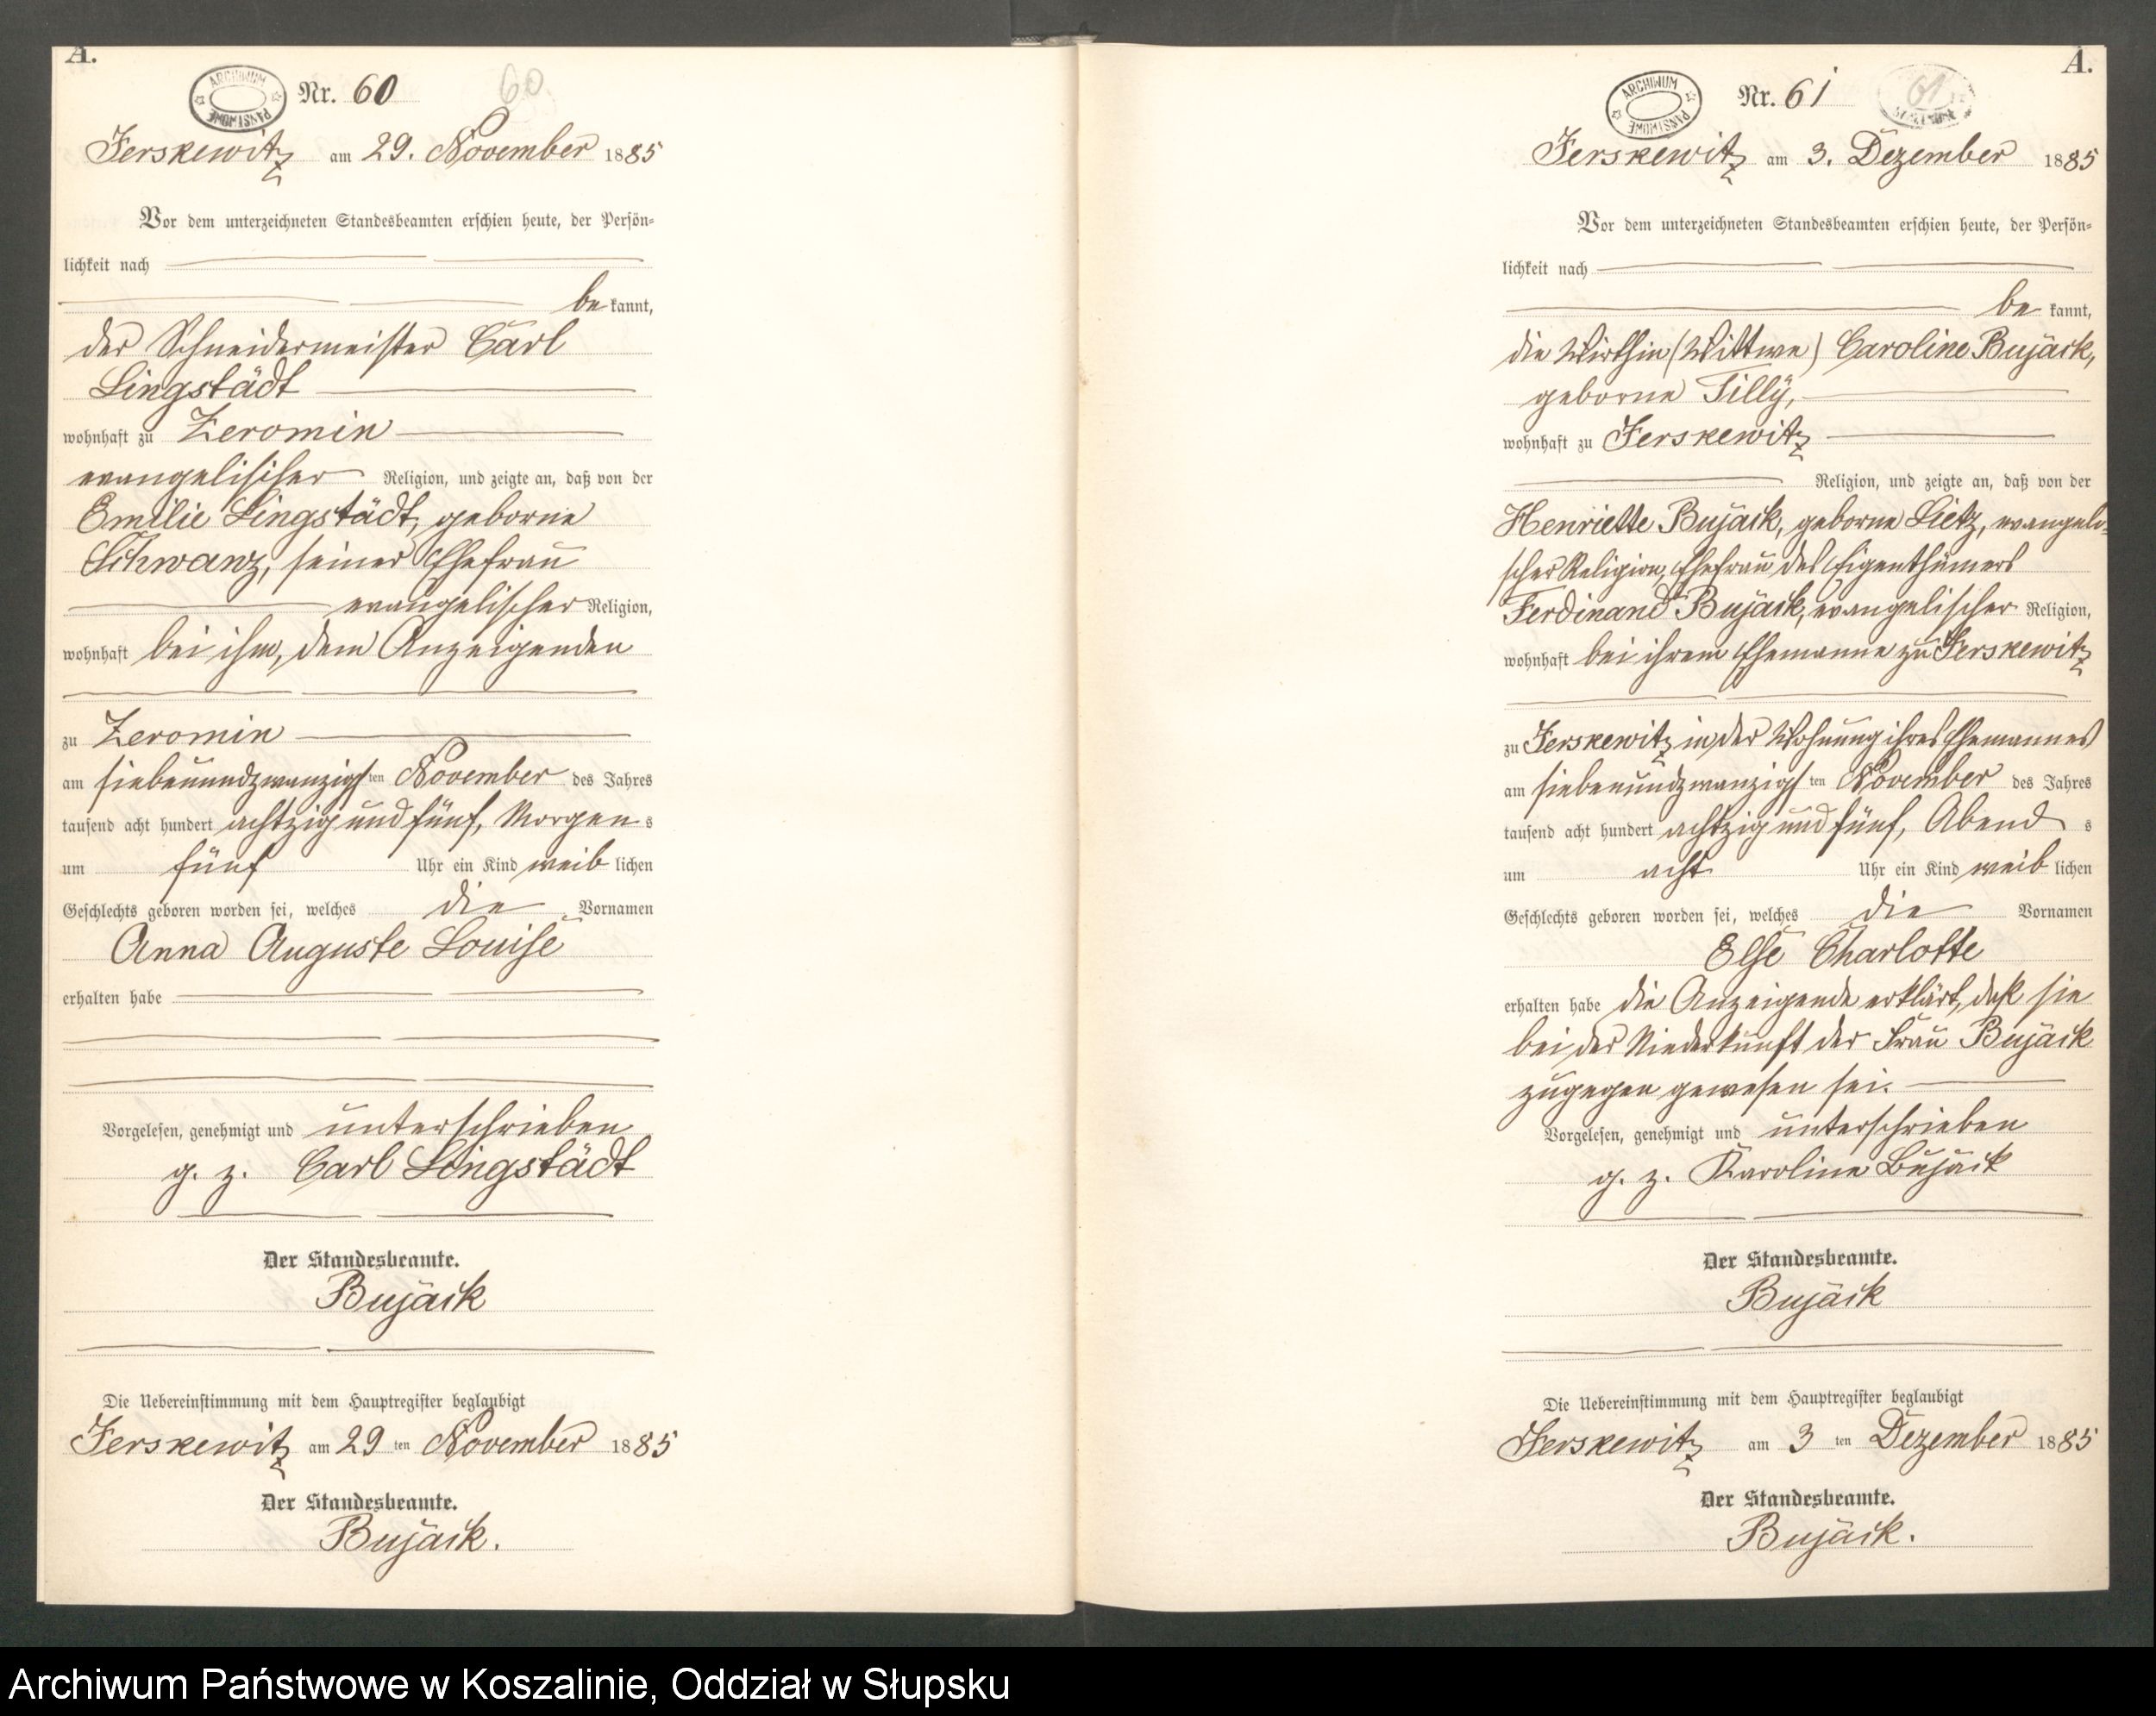 A.
ARCHIWUM PAŃSTWOWE
Nr. 60
60
Jerskewitz am 29. November 1885
Vor dem unterzeichneten Standesbeamten erschien heute, der Persön-
lichkeit nach
be kannt,
der Schneidermeister Carl
Lingstädt
wohnhaft zu Zeromin
evangelischer Religion, und zeigte an, daß von der
Emilie Lingstädt, geborne
Schwanz, seiner Ehefrau
evangelischer Religion,
wohnhaft bei ihm, dem Anzeigenden
zu Zeromin
am siebenundzwanzigsten November des Jahres
tausend acht hundert achtzig und fünf, Morgens
um fünf Uhr ein Kind weiblichen
Geschlechts geboren worden sei, welches die Vornamen
Anna Auguste Louise
erhalten habe
Vorgelesen, genehmigt und unterschrieben
g. z. Carl Lingstädt
Der Standesbeamte.
Bujack
Die Uebereinstimmung mit dem Hauptregister beglaubigt
Jerskewitz am 29 ten November 1885
Der Standesbeamte.
Bujack.
A.
ARCHIWUM PAŃSTWOWE
Nr. 61
61
Jerskewitz am 3. Dezember 1885
Vor dem unterzeichneten Standesbeamten erschien heute, der Persön-
lichkeit nach
be kannt,
die Wirthin (Wittwe) Caroline Bujack,
geborne Tilly,
wohnhaft zu Jerskewitz
Religion, und zeigte an, daß von der
Henriette Bujack, geborne Lietz, evangeli-
scher Religion, Ehefrau des Eigenthümers
Ferdinand Bujack, evangelischer Religion,
wohnhaft bei ihrem Ehemanne zu Jerskewitz
zu Jerskewitz in der Wohnung ihres Ehemannes
am siebenundzwanzigsten November des Jahres
tausend acht hundert achtzig und fünf, Abends
um acht Uhr ein Kind weiblichen
Geschlechts geboren worden sei, welches die Vornamen
Else Charlotte
erhalten habe die Anzeigende erklärt, daß sie
bei der Niederkunft der Frau Bujack
zugegen gewesen sei.
Vorgelesen, genehmigt und unterschrieben
g. z. Karoline Bujack
Der Standesbeamte.
Bujack
Die Uebereinstimmung mit dem Hauptregister beglaubigt
Jerskewitz am 3 ten Dezember 1885
Der Standesbeamte.
Bujack.
Archiwum Państwowe w Koszalinie, Oddział w Słupsku